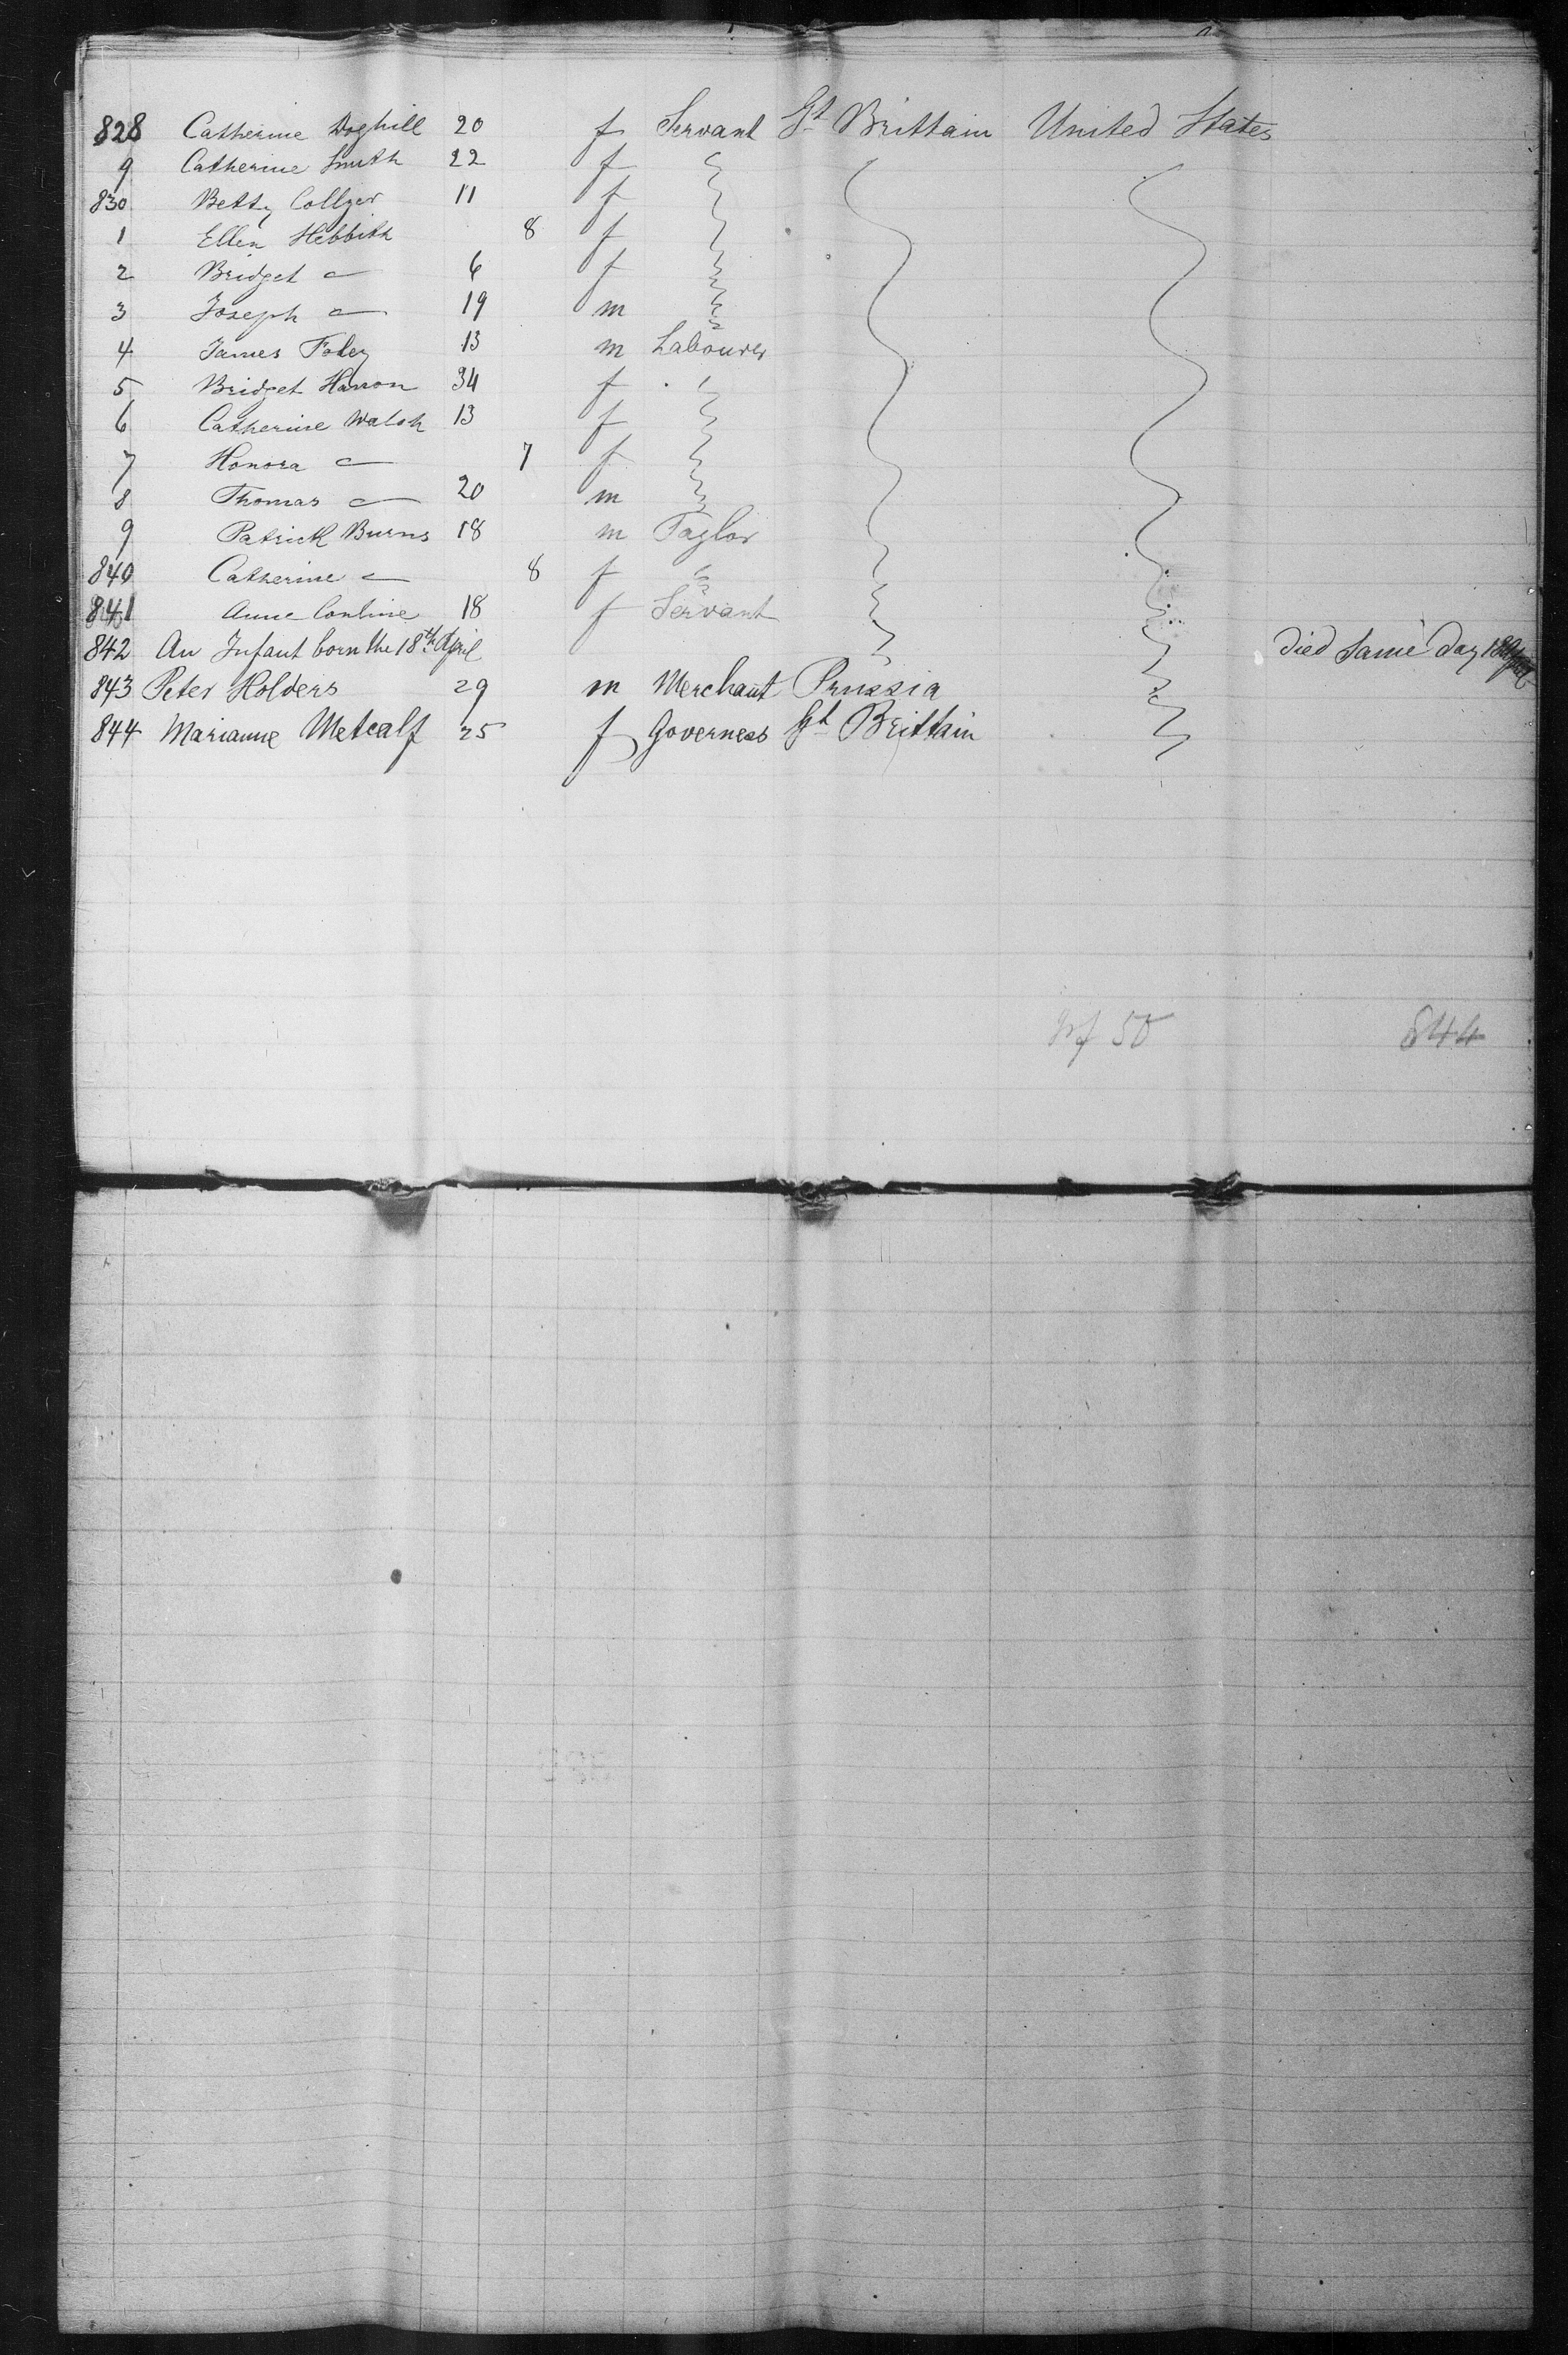 828 Catherine Doghill 20 f Servant Gt Brittain United States
9 Catherine Smith 22 f
830 Betty Collyer 11 f
1 Ellen Hebbith 8 f
2 Bridget 6 f
3 Joseph 19 m
4 James Foley 13 m Labourer
5 Bridget Harron 34 f
6 Catherine Walsh 13 f
7 Honora 7 f
8 Thomas 20 m
9 Patrick Burns 18 m Taylor
840 Catherine 8 f
841 Anne Conline 18 f Servant
842 An Infant born the 18th April Died Same Day 18
843 Peter Holders 29 m Merchant Prussia
844 Marianne Metcalf 25 f Governess Gt Brittain
50 844